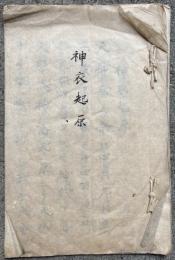 神衣起原